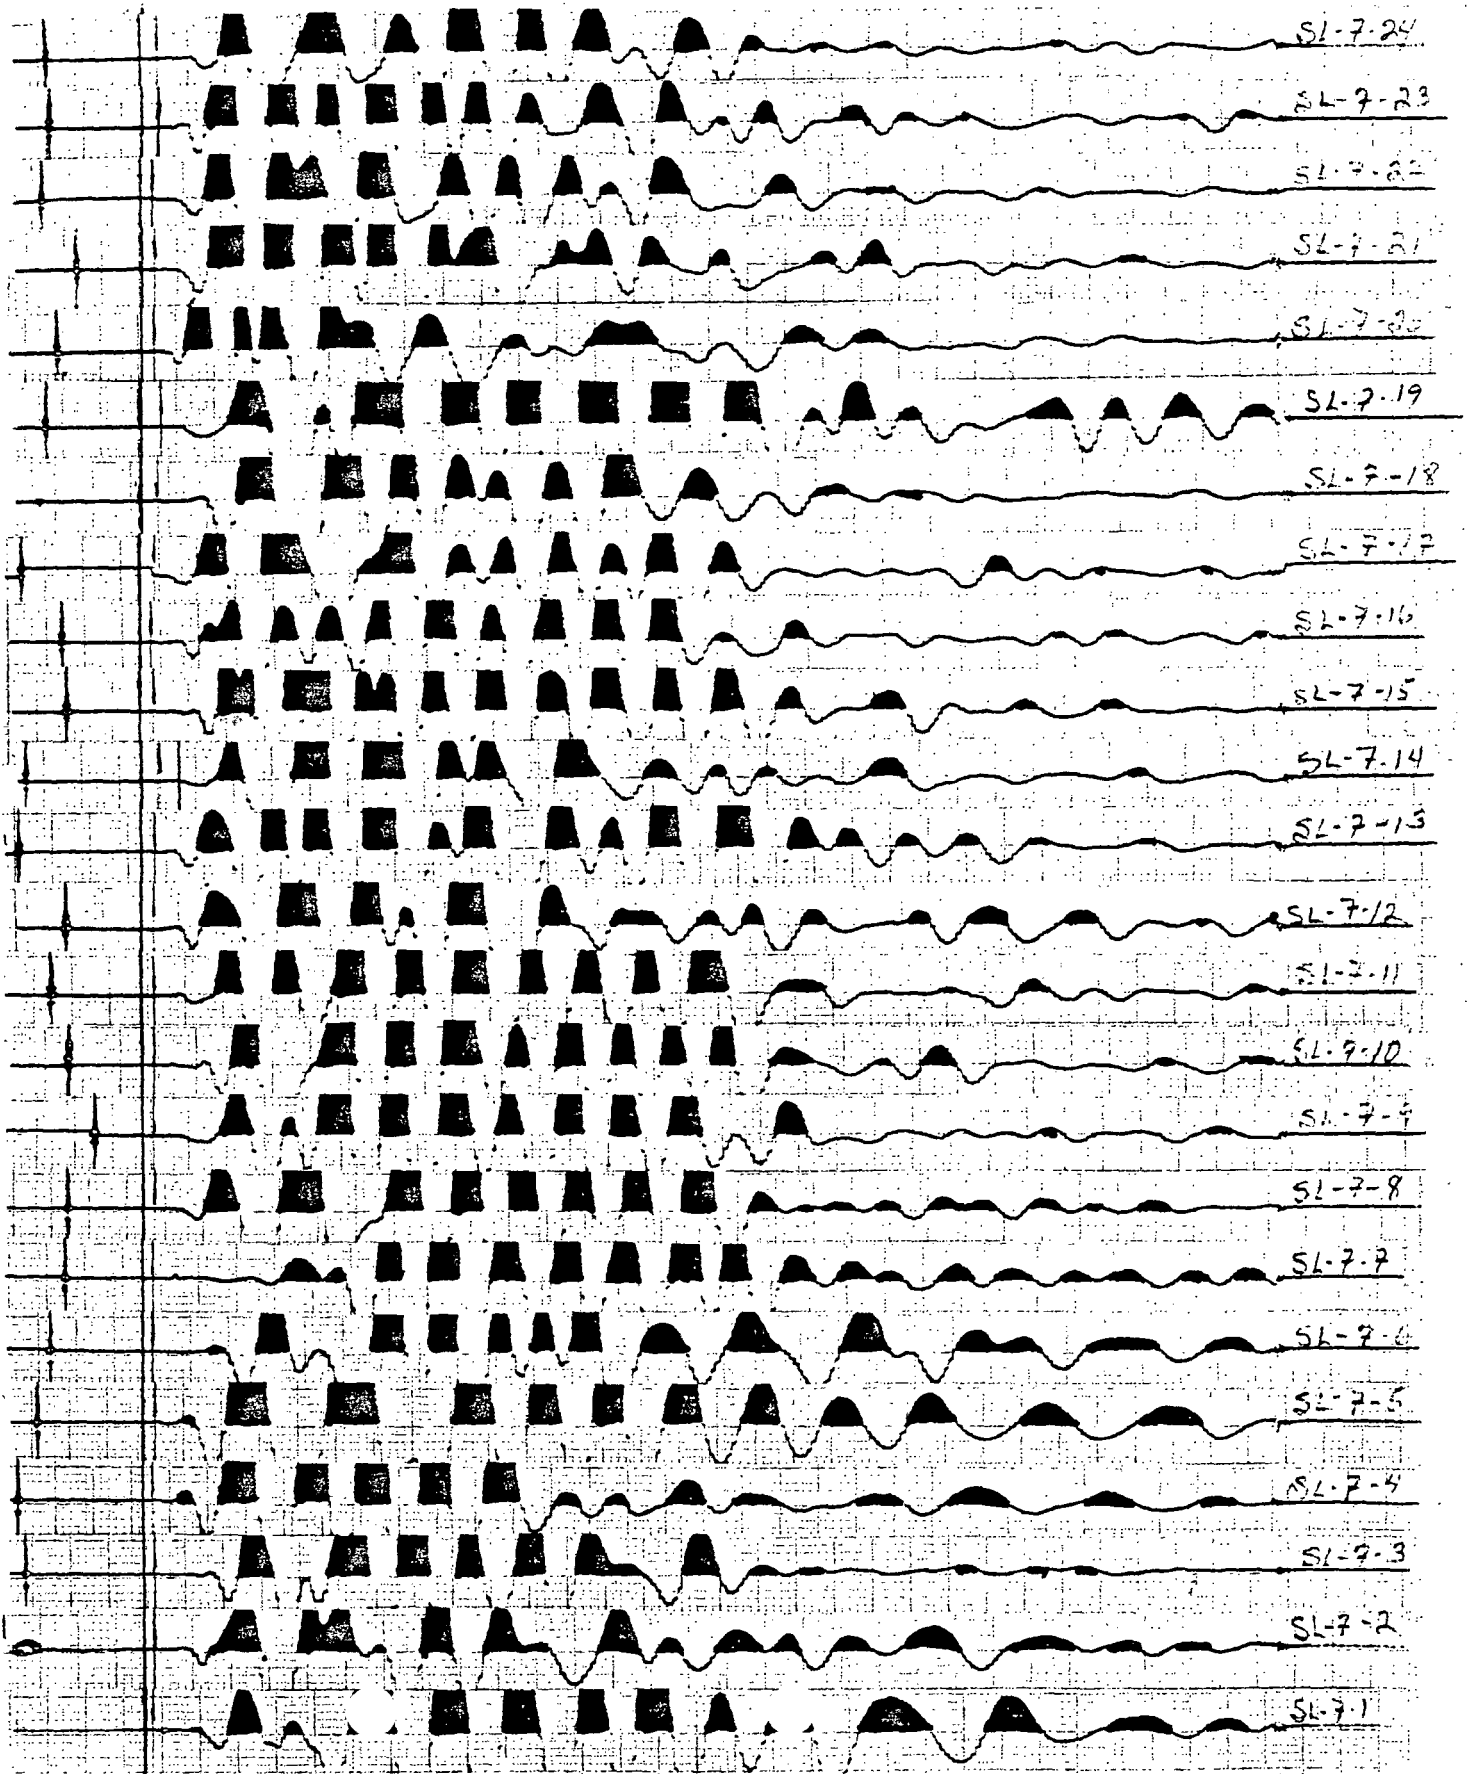 SL-7-24
SL-7-23
SL-7-22
SL-7-21
SL-7-20
SL-7-19
SL-7-18
SL-7-17
SL-7-16
SL-7-15
SL-7-14
SL-7-13
SL-7-12
SL-7-11
SL-7-10
SL-7-9
SL-7-8
SL-7-7
SL-7-6
SL-7-5
SL-7-4
SL-7-3
SL-7-2
SL-7-1